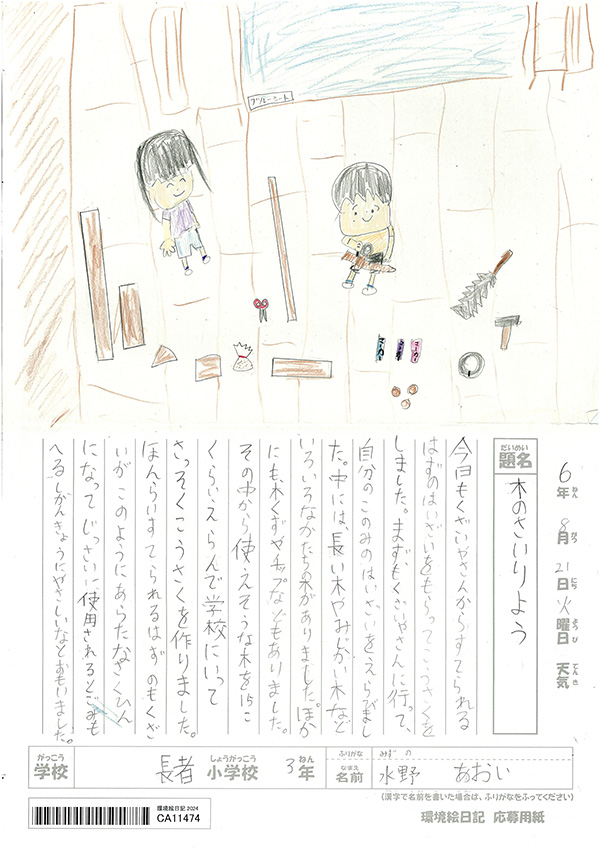 ブルーシート
マーカー
6年 8月 21日 火曜日 天気
ねん がつ にち ようび てんき
だいめい
題名
木のさいりよう
今日もくざいやさんからすてられる
はずのはいざいをもらってこうさくを
しました。まずもくざいやさんに行って、
自分のこのみのはいざいをえらびまし
た。中には、長い木やみじかい木など
いろいろなかたちの木がありました。ほか
にも、木くずやチップなどもありました。
その中から使えそうな木を15こ
くらいえらんで学校にいって
さっそくこうさくを作りました。
ほんらいすてられるはずのもくざ
いがこのようにあらたなさくひん
になってじっさいに使用されるとごみも
へるしかんきょうにやさしいなとおもいました。
がっこう しょうがっこう ねん
学校 長者 小学校 3年
ふりがな みずの
なまえ
名前 水野 あおい
(漢字で名前を書いた場合は、ふりがなをふってください)
環境絵日記 2024
CA11474
環境絵日記 応募用紙